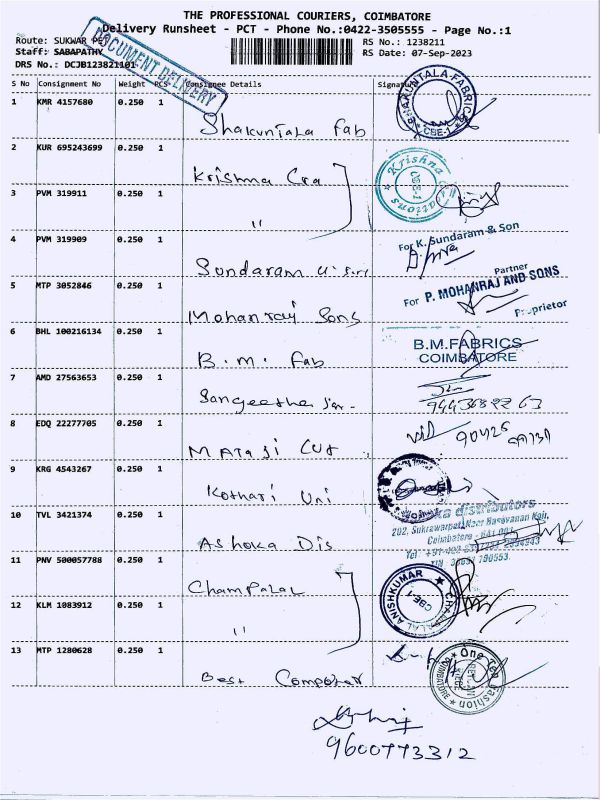 THE PROFESSIONAL COURIERS, COIMBATORE
Delivery Runsheet - PCT - Phone No.:0422-3505555 - Page No.:1
Route: SUKWAR PET
RS No.: 1238211
Staff: SABAPATHY
RS Date: 07-Sep-2023
DRS No.: DCJB123821101
DOCUMENT DELIVERY
S No Consignment No Weight PCS Consignee Details Signature
1 KMR 4157680 0.250 1 Shakuntala Fab
SHAKUNTALA FABRICS CBE-1
2 KUR 695243699 0.250 1 Krishna Cra
Krishna CBE-1
3 PVM 319911 0.250 1 "
4 PVM 319909 0.250 1 Sundaram
For K. Sundaram & Son
Partner
5 MTP 3052846 0.250 1 Mohanraj Sons
For P. MOHANRAJ AND SONS
Proprietor
6 BHL 100216134 0.250 1 B.M. Fab
B.M.FABRICS
COIMBATORE
7 AMD 27563653 0.250 1 Sangeetha
8 EDQ 22277705 0.250 1 MATAJI CUT
9 KRG 4543267 0.250 1 Kothari Uni
10 TVL 3421374 0.250 1 Ashoka Dis
distributors
202, Sukrawarpet, Near Basavanan Koil,
Coimbatore
11 PNV 500057788 0.250 1 Champalal
CHAMPALAL ANISHKUMAR CBE-1
12 KLM 1083912 0.250 1 "
13 MTP 1280628 0.250 1 Best Computer
One Ten Fashion
COIMBATORE
9600773312